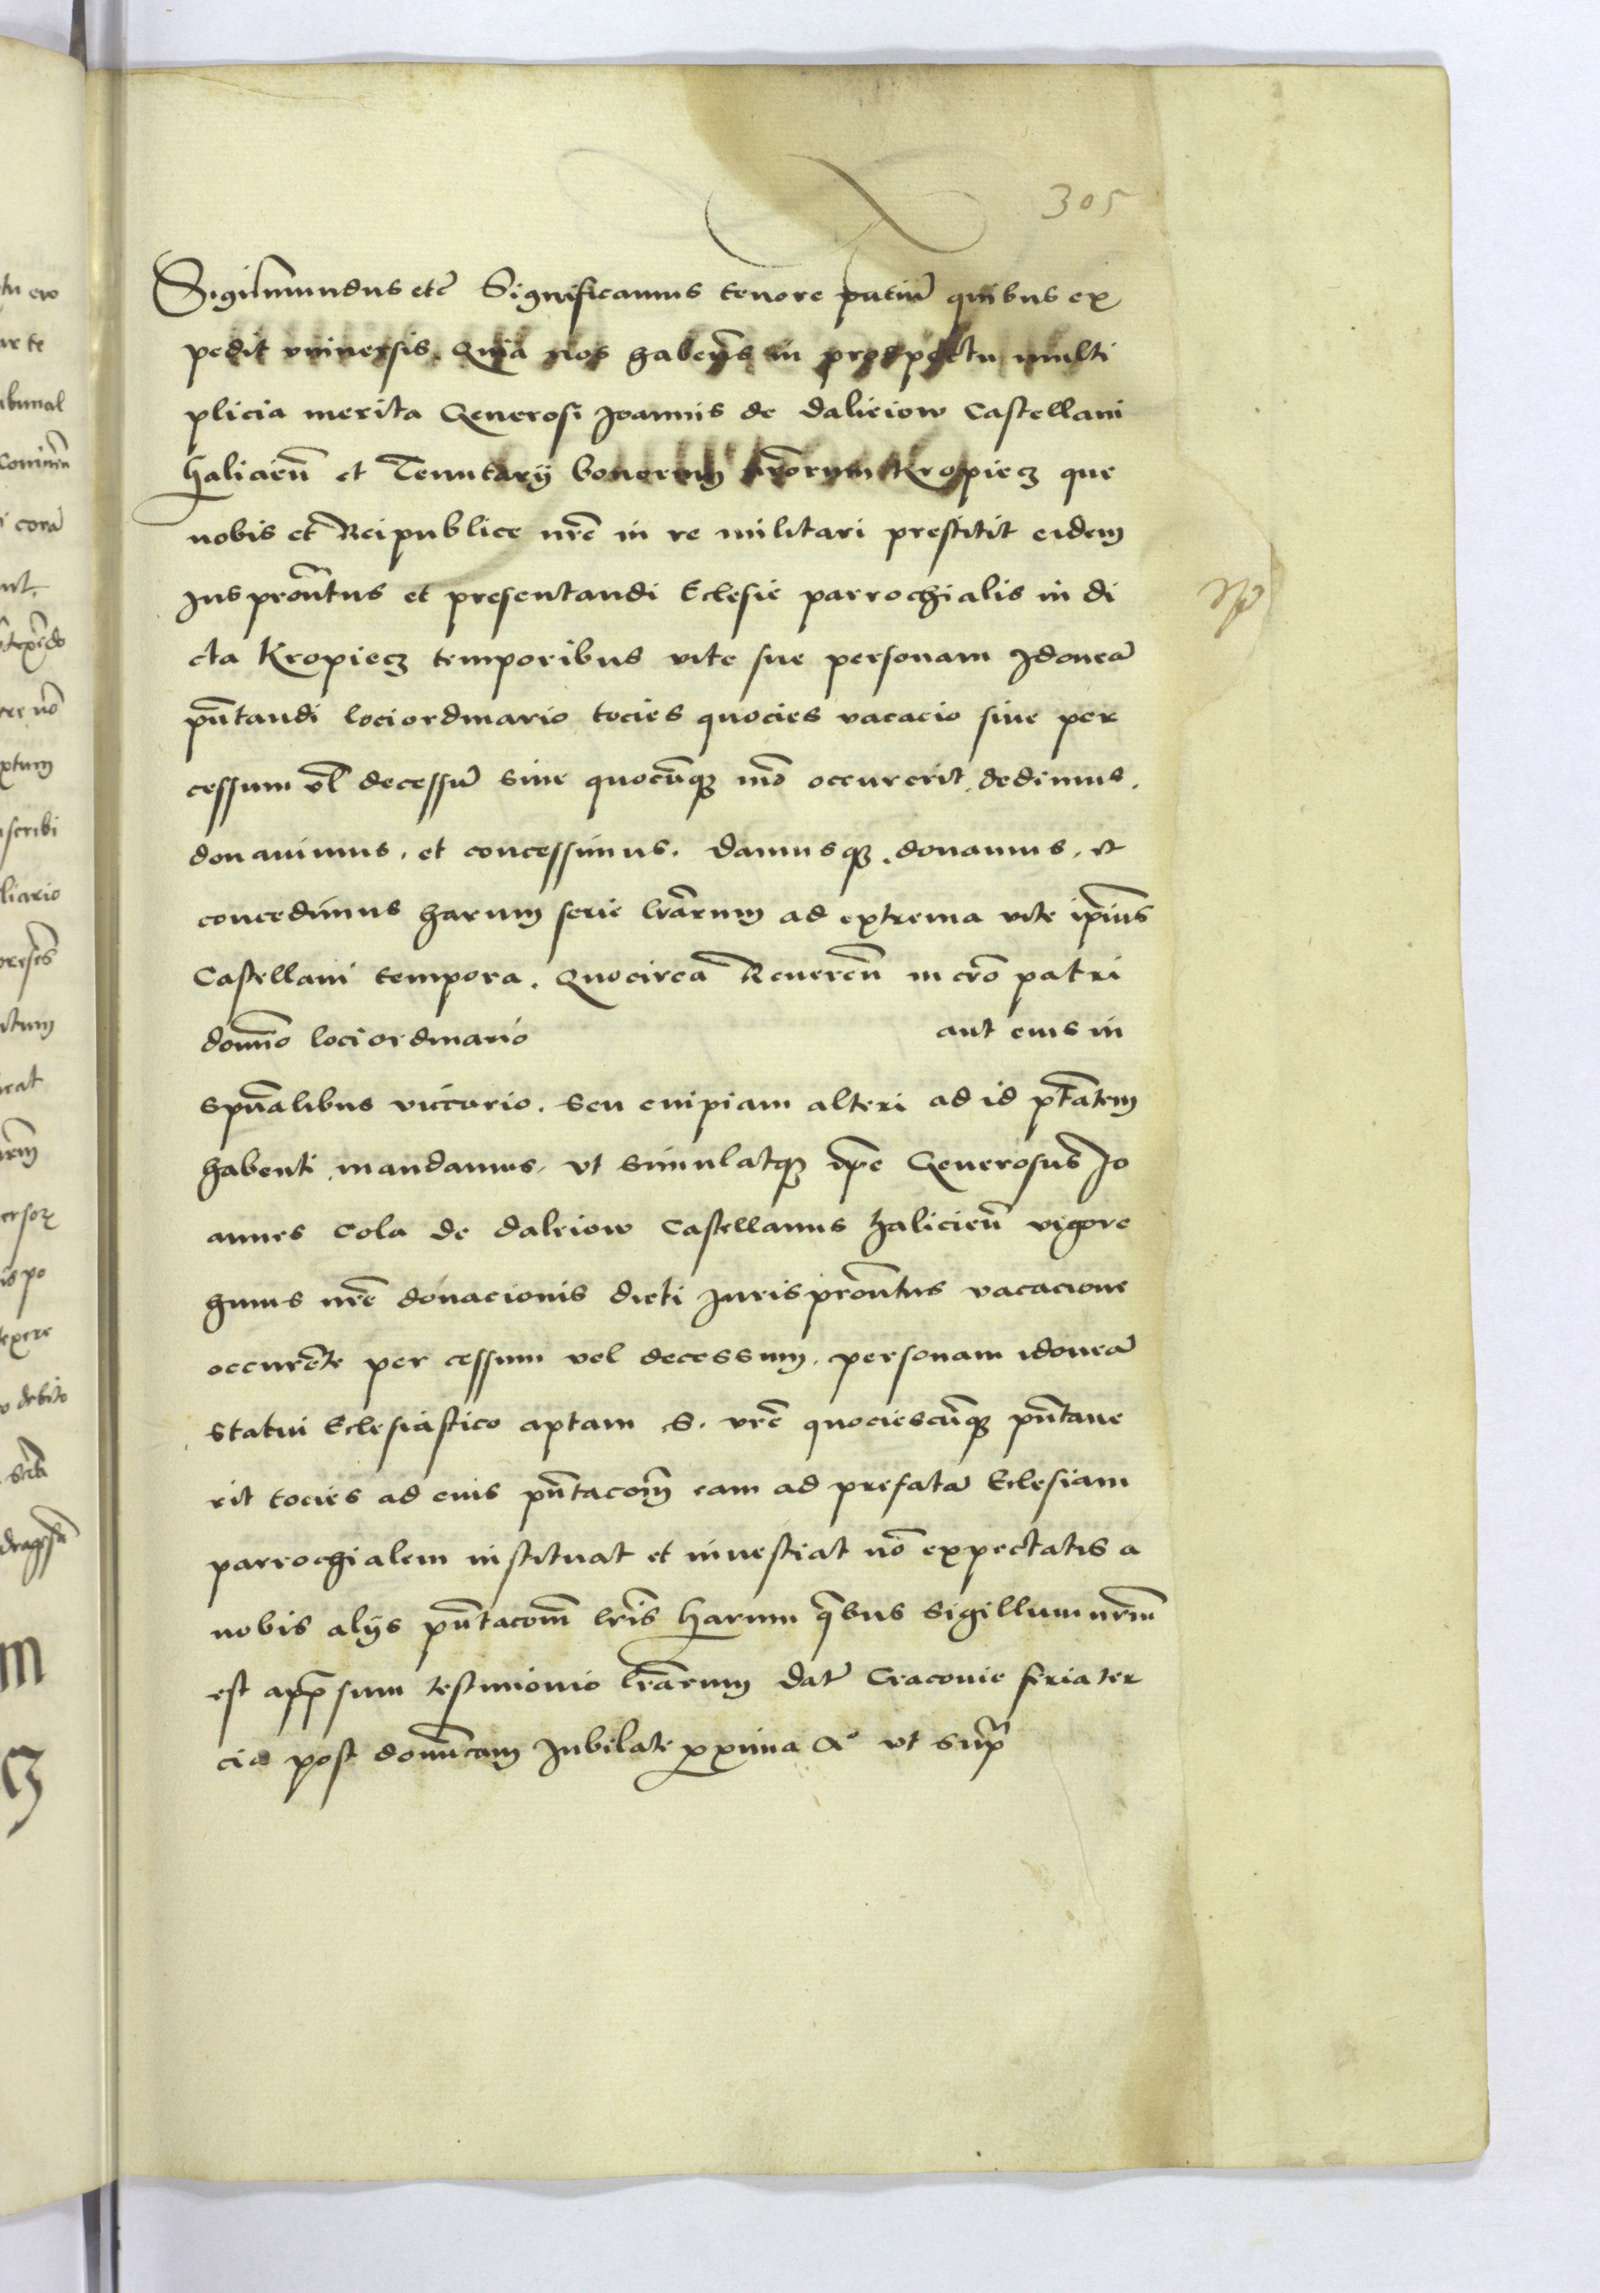 305
Sigismundus etc̄ Significamus tenore pn̄tiū quibus ex
pedit vniuersis. Quia nos habēs in prospectu multi
plicia merita Generosi Joannis de dalieiow Castellani
Haliciēn et Tenutarij bonorum nr̄orum Kropiecz que
nobis et Reipublice nr̄e in re militari prestitit eidem
Juspatronatus et presentandi Eclesie parrochialis in di
cta Kropiecz temporibus vite sue personam Idoneā
pn̄tandi loci ordinario tocies quocies vacacio siue per
cessum vl̄ decessū siue quocūqꝫ mō occurerit. dedimus.
donauimus. et concessimus. damusqꝫ. donamus. et
concedimus harum serie lr̄arum ad extrema vite ip̄ius
Castellani tempora. Quocirca Reuerēn in cr̄o patri
domīo loci ordinario aut eius in
spūalibus viccario. Seu cuipiam alteri ad id pt̄atem
habenti. mandamus. vt simulatqꝫ ip̄e Generosus Jo
annes Cola de daleiow Castellanus haliciēn vigore
huius nr̄e donacionis dicti Jurispatronatus vacacione
occurēte per cessum vel decessum. personam idoneā
statui Eclesiastico aptam S. vr̄e quociescūqꝫ pn̄taue
rit tocies ad eius pn̄tacōm eam ad prefatā Eclesiam
parrochialem instituat et inuestiat nō expectatis a
nobis alijs pn̄tacōm lr̄is Harum qūbus Sigillum nr̄m
est appn̄sum testimonio lr̄arum dat̄ Cracouie feria ter
cia post domīcam Jubilate proxima A° vt supra